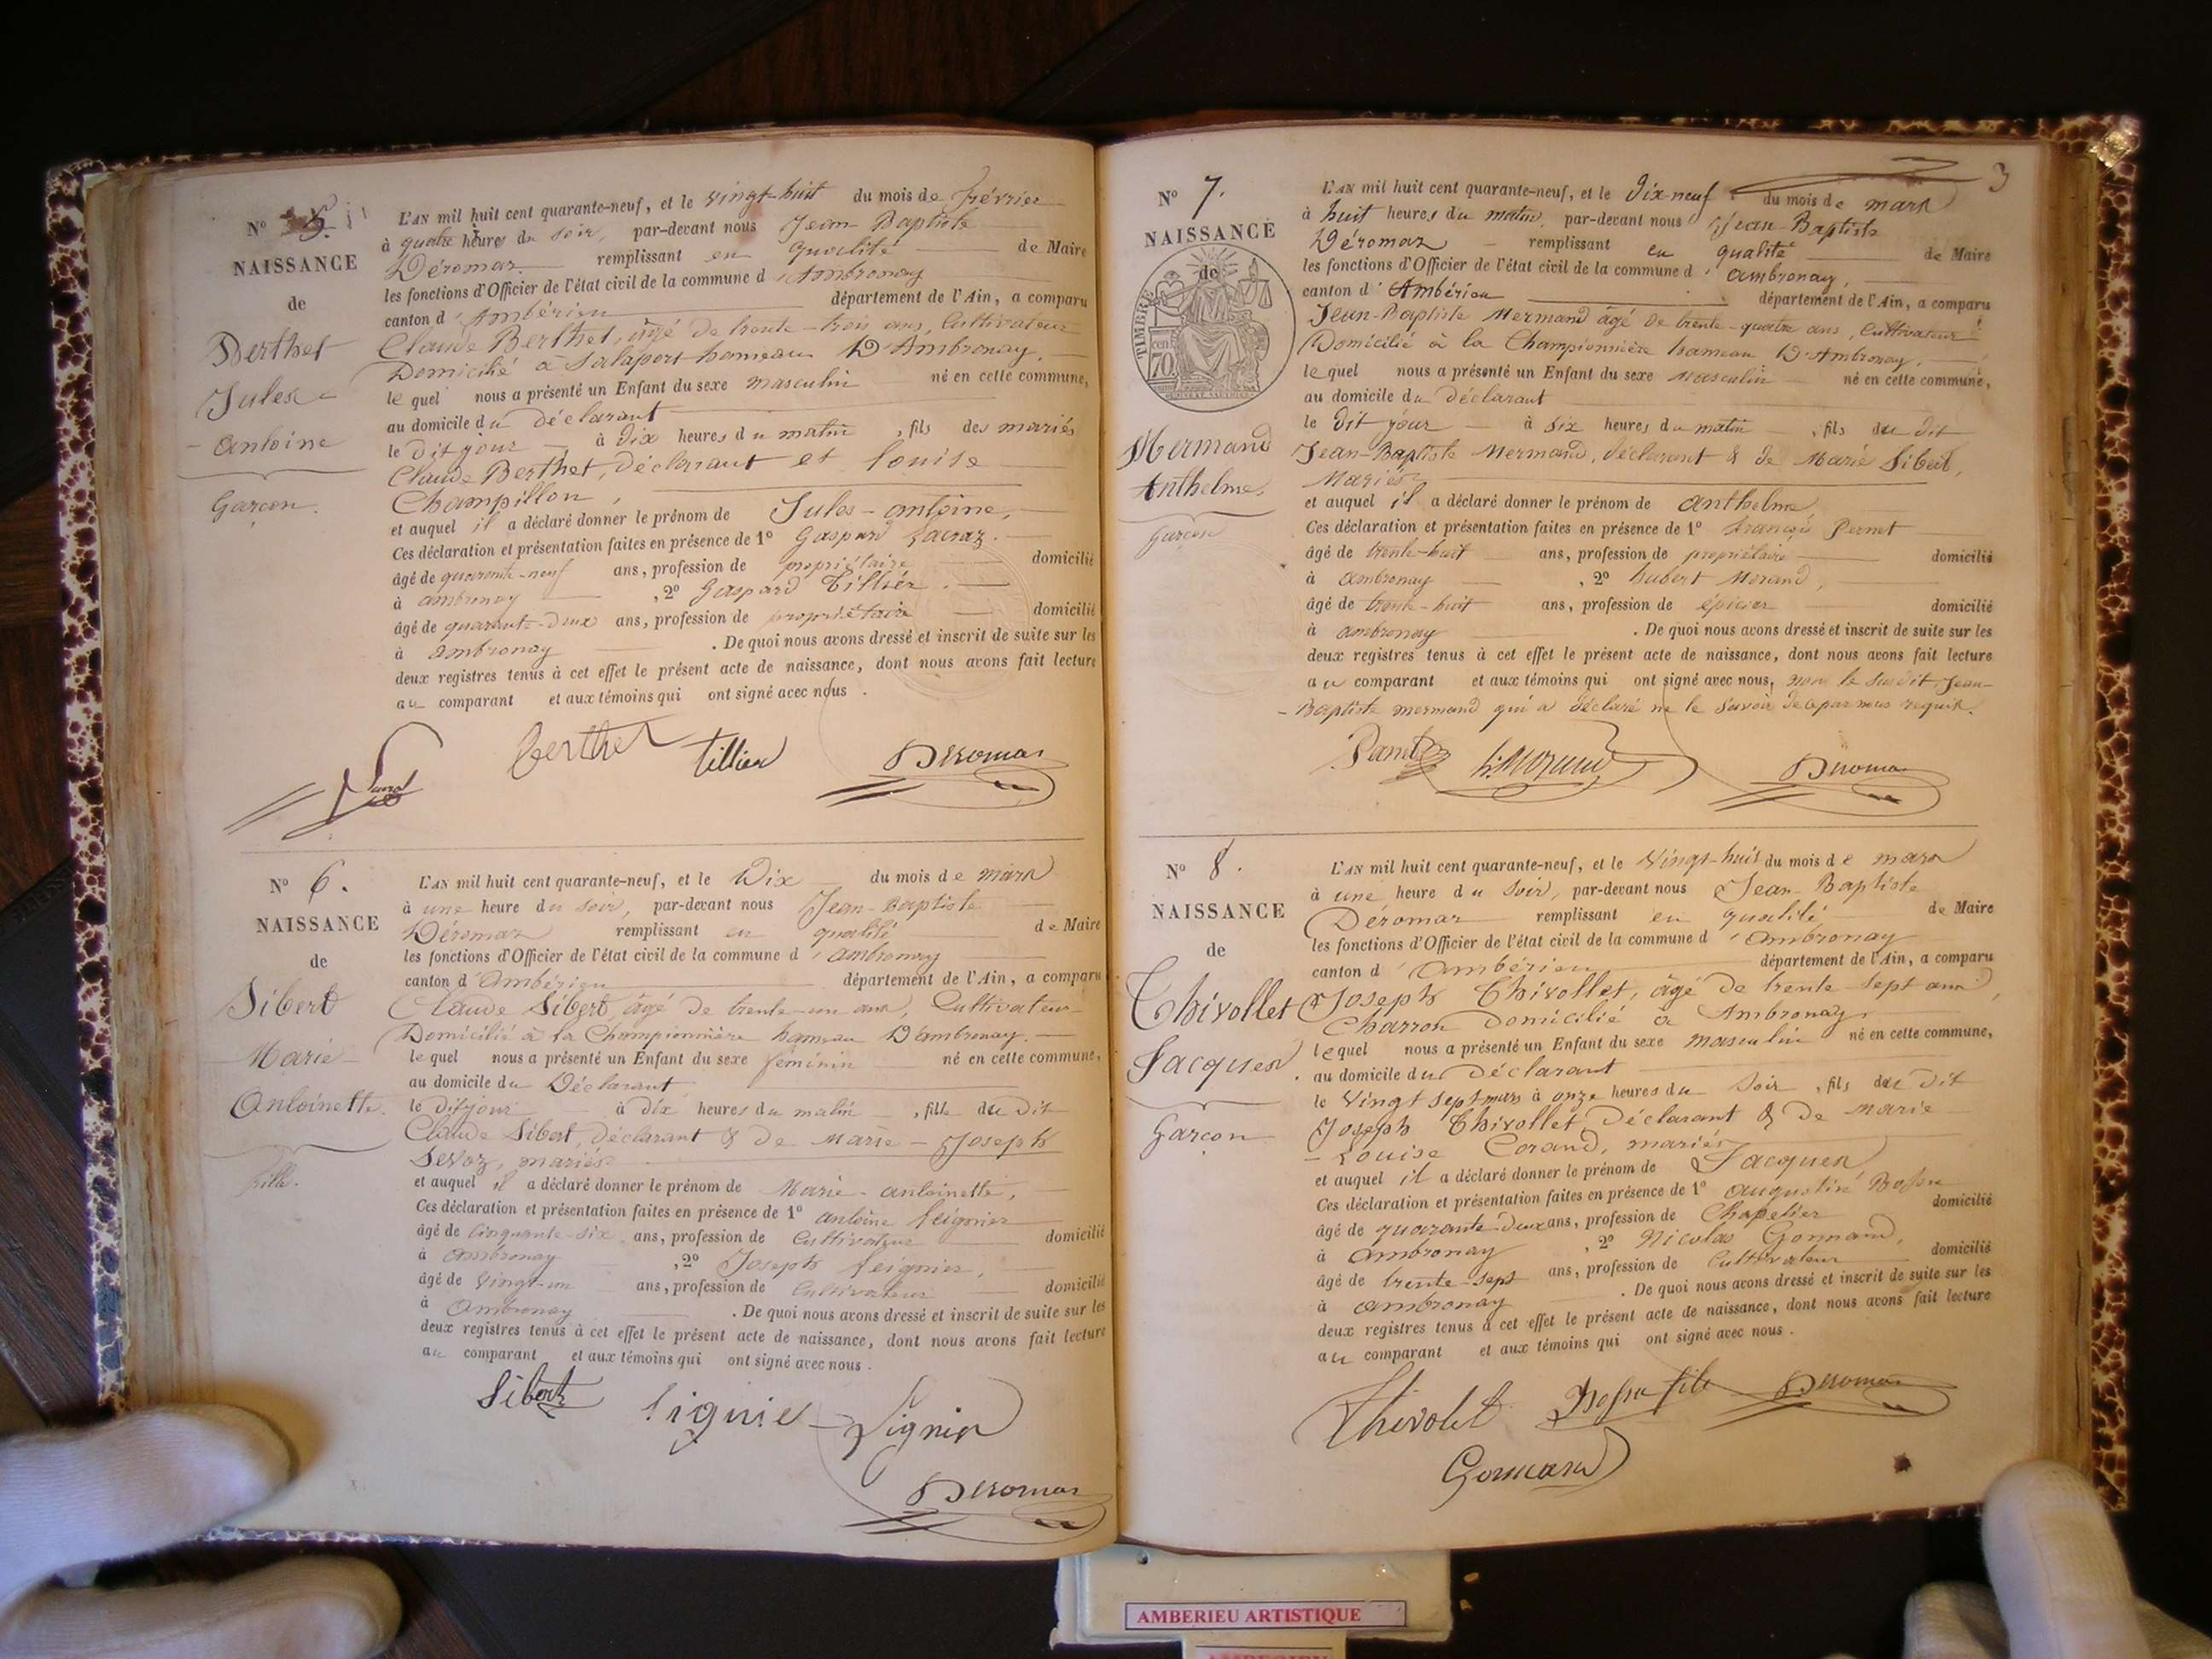 N° 5.
NAISSANCE
de
Berthet
Jules
- Antoine
Garçon.
L'AN mil huit cent quarante-neuf, et le vingt-huit du mois de février
à quatre heures du soir, par-devant nous Jean Baptiste
Déromas remplissant en qualité de Maire
les fonctions d'Officier de l'état civil de la commune d'Ambronay
canton d'Ambérieu département de l'Ain, a comparu
Claude Berthet, âgé de trente-trois ans, Cultivateur
Domicilié à Salaport hameau D'Ambronay.
le quel nous a présenté un Enfant du sexe masculin né en cette commune,
au domicile du déclarant
le dit jour à dix heures du matin, fils des mariés
Claude Berthet, déclarant et Louise
Champillon,
et auquel il a déclaré donner le prénom de Jules-antoine,
Ces déclaration et présentation faites en présence de 1° Gaspard Lacraz.
âgé de quarante-neuf ans, profession de propriétaire domicilié
à ambronay, 2° Gaspard Tillier.
âgé de quarante-deux ans, profession de propriétaire domicilié
à ambronay. De quoi nous avons dressé et inscrit de suite sur les
deux registres tenus à cet effet le présent acte de naissance, dont nous avons fait lecture
au comparant et aux témoins qui ont signé avec nous.
Berthet Tillier Déromas
N° 6.
NAISSANCE
de
Sibert
Marie-
Antoinette.
fille.
L'AN mil huit cent quarante-neuf, et le Dix du mois de mars
à une heure du soir, par-devant nous Jean-Baptiste
Déromas remplissant en qualité de Maire
les fonctions d'Officier de l'état civil de la commune d'ambronay
canton d'ambérieu département de l'Ain, a comparu
Claude Sibert, âgé de trente-un ans, Cultivateur
Domicilié à la Championnière hameau D'ambronay.
le quel nous a présenté un Enfant du sexe féminin né en cette commune,
au domicile du Déclarant
le dit jour à dix heures du matin, fille du dit
Claude Sibert, déclarant & de Marie-Joseph
Sevoz, mariés
et auquel il a déclaré donner le prénom de Marie-antoinette,
Ces déclaration et présentation faites en présence de 1° antoine Leignier
âgé de Cinquante-six ans, profession de Cultivateur domicilié
à ambronay, 2° Joseph Leignier,
âgé de vingt-un ans, profession de Cultivateur domicilié
à Ambronay. De quoi nous avons dressé et inscrit de suite sur les
deux registres tenus à cet effet le présent acte de naissance, dont nous avons fait lecture
au comparant et aux témoins qui ont signé avec nous.
Sibert Lignie Lignier
Déromas
3
N° 7.
NAISSANCE
de
TIMBRE
cen 70
Mermand
Anthelme.
Garçon
L'AN mil huit cent quarante-neuf, et le Dix-neuf du mois de mars
à huit heures du matin, par-devant nous Jean-Baptiste
Déromas remplissant en qualité de Maire
les fonctions d'Officier de l'état civil de la commune d'ambronay,
canton d'Ambérieu département de l'Ain, a comparu
Jean-Baptiste Mermand âgé de trente-quatre ans, Cultivateur
Domicilié à la Championnière hameau D'Ambronay.
le quel nous a présenté un Enfant du sexe masculin né en cette commune,
au domicile du déclarant
le dit jour à six heures du matin, fils du dit
Jean-Baptiste Mermand, déclarant & de Marie Sibert,
Mariés
et auquel il a déclaré donner le prénom de anthelme,
Ces déclaration et présentation faites en présence de 1° françois Pernet
âgé de trente-huit ans, profession de propriétaire domicilié
à ambronay, 2° hubert Morand,
âgé de trente-huit ans, profession de épicier domicilié
à ambronay. De quoi nous avons dressé et inscrit de suite sur les
deux registres tenus à cet effet le présent acte de naissance, dont nous avons fait lecture
au comparant et aux témoins qui ont signé avec nous, non le susdit Jean-
-Baptiste mermand qui a déclaré ne le savoir de ce par nous requis.
h. Morand Déromas
N° 8.
NAISSANCE
de
Thivollet
Jacques.
Garçon
L'AN mil huit cent quarante-neuf, et le vingt-huit du mois de mars
à une heure du soir, par-devant nous Jean-Baptiste
Déromas remplissant en qualité de Maire
les fonctions d'Officier de l'état civil de la commune d'ambronay
canton d'ambérieu département de l'Ain, a comparu
Joseph Thivollet, âgé de trente-sept ans,
Charron domicilié à Ambronay.
le quel nous a présenté un Enfant du sexe masculin né en cette commune,
au domicile du déclarant
le vingt sept mars à onze heures du soir, fils du dit
Joseph Thivollet, déclarant & de Marie
-Louise Corand, mariés
et auquel il a déclaré donner le prénom de Jacques
Ces déclaration et présentation faites en présence de 1° augustin
âgé de quarante-deux ans, profession de Chapelier domicilié
à ambronay, 2° Nicolas Gonnand,
âgé de trente-sept ans, profession de Cultivateur domicilié
à ambronay. De quoi nous avons dressé et inscrit de suite sur les
deux registres tenus à cet effet le présent acte de naissance, dont nous avons fait lecture
au comparant et aux témoins qui ont signé avec nous.
Thivolet fils Déromas
Gonnand
AMBERIEU ARTISTIQUE